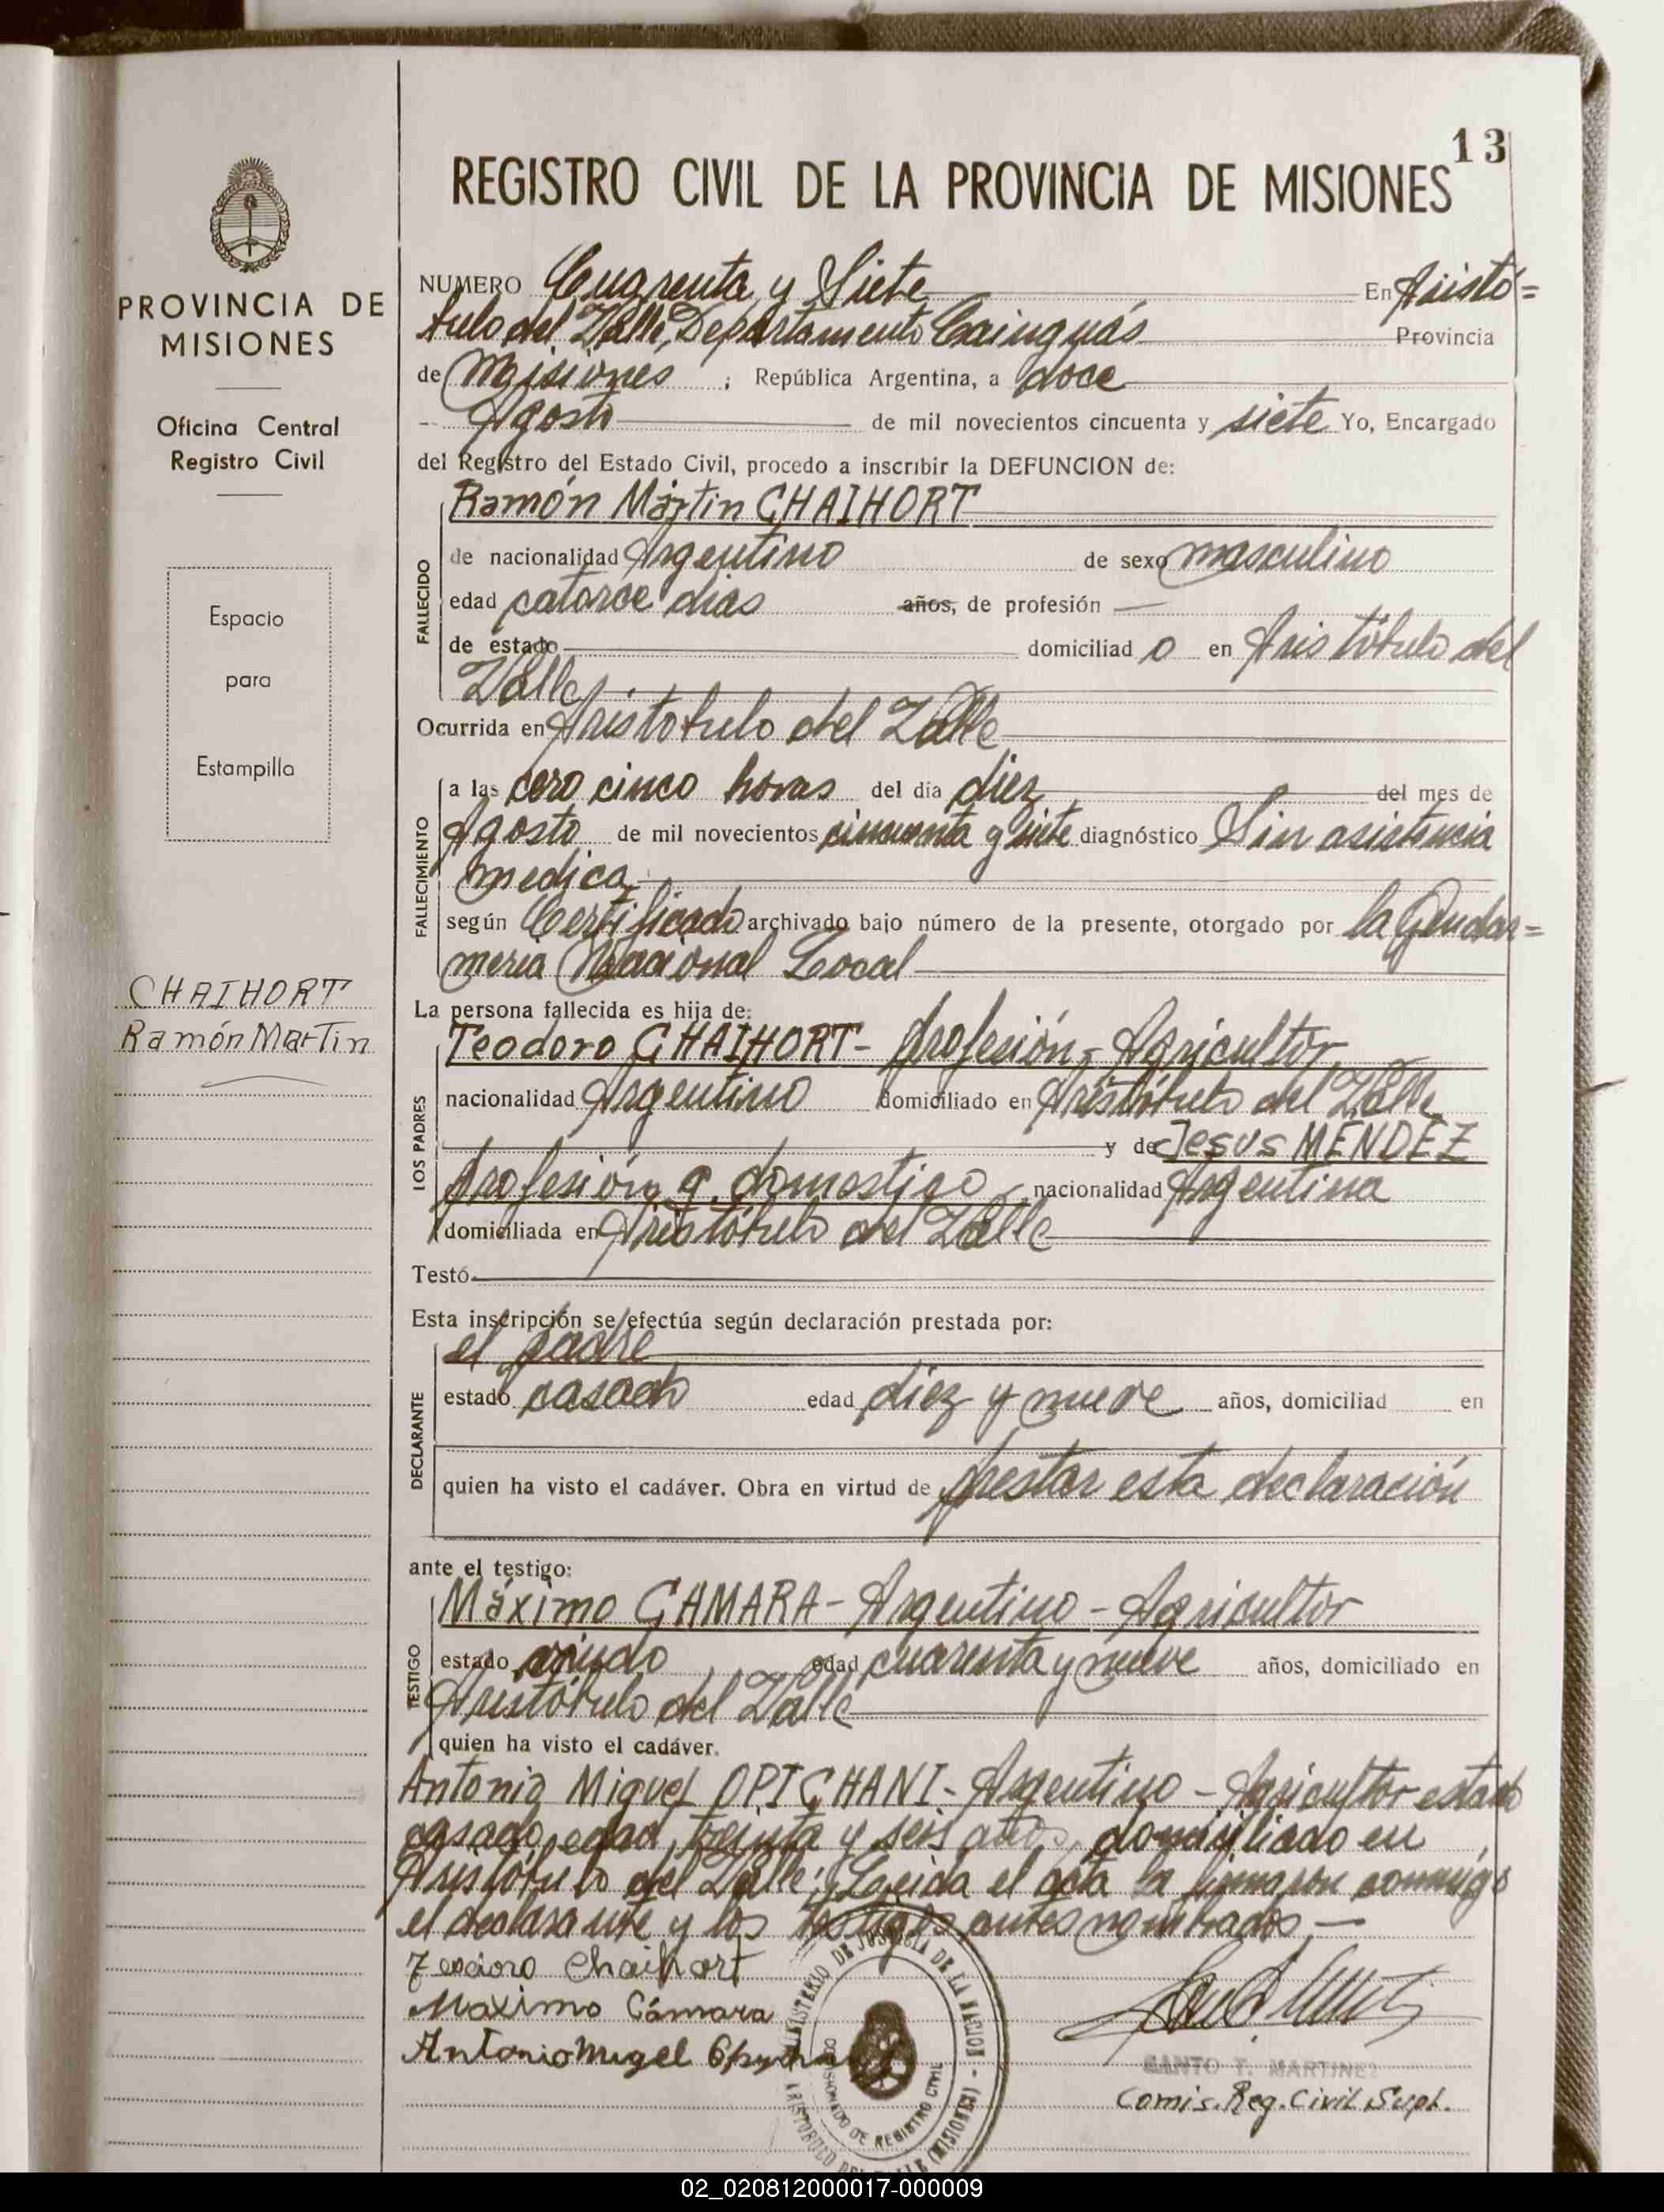 13
REGISTRO CIVIL DE LA PROVINCIA DE MISIONES
PROVINCIA DE
MISIONES
Oficina Central
Registro Civil
Espacio
para
Estampilla
CHAIHORT
Ramón Martin
NUMERO Cuarenta y Siete En Aristó=
bulo del Valle, Departamento Cainguás Provincia
de Misiones ; República Argentina, a doce
Agosto de mil novecientos cincuenta y siete Yo, Encargado
del Registro del Estado Civil, procedo a inscribir la DEFUNCION de:
Ramón Martin CHAIHORT
FALLECIDO
de nacionalidad Argentino de sexo masculino
edad catorce dias años, de profesión —
de estado domiciliad o en Aristóbulo del
Valle
Ocurrida en Aristobulo del Valle
FALLECIMIENTO
a las cero cinco horas del dia diez del mes de
Agosto de mil novecientos cincuenta y siete diagnóstico Sin asistencia
medica
según Certificado archivado bajo número de la presente, otorgado por la Gendar=
meria Nacional Local
La persona fallecida es hija de:
LOS PADRES
Teodoro CHAIHORT- profesión- Agricultor
nacionalidad Argentino domiciliado en Aristóbulo del Valle
y de Jesus MÉNDEZ
profesión q. domestico nacionalidad Argentina
domiciliada en Aristóbulo del Valle
Testó
Esta inscripción se efectúa según declaración prestada por:
DECLARANTE
el padre
estado casado edad diez y nueve años, domiciliad en
quien ha visto el cadáver. Obra en virtud de prestar esta declaración
ante el testigo:
TESTIGO
Máximo CAMARA- Argentino - Agricultor
estado viudo edad cuarenta y nueve años, domiciliado en
Aristóbulo del Valle
quien ha visto el cadáver.
Antonio Miguel OPICHANI- Argentino - Agricultor estado
casado, edad, treinta y seis años, domiciliado en
Aristóbulo del Valle; Leida el acta la firmaron conmigo
el declarante y los testigos antes nombrados —
Teodoro Chaihort
Maximo Cámara
Antonio Migel
MINISTERIO DE JUSTICIA DE LA NACION - ARISTOBULO DEL VALLE (MISIONES)
DE REGISTRO CIVIL
SANTO T. MARTINEZ
Comis. Reg. Civil Supl.
02_020812000017-000009